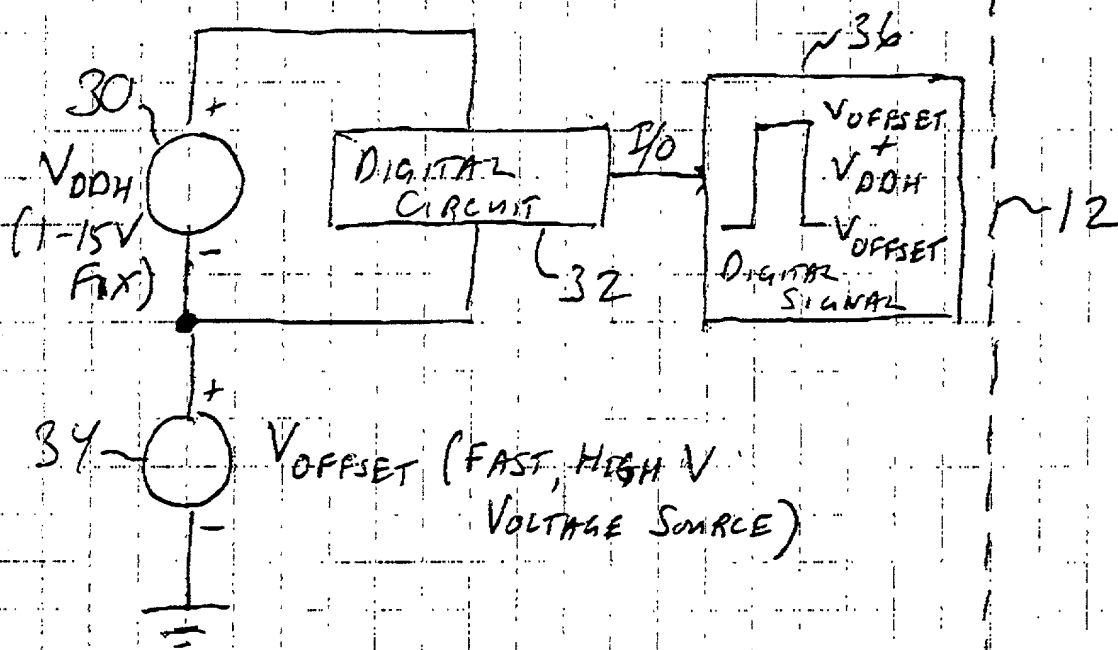 36
30
+
VDDH
(1-15V
FIX)
-
DIGITAL
CIRCUIT
32
I/O
VOFFSET
+
VDDH
VOFFSET
DIGITAL
SIGNAL
12
34
+
VOFFSET (FAST, HIGH V
VOLTAGE SOURCE)
-